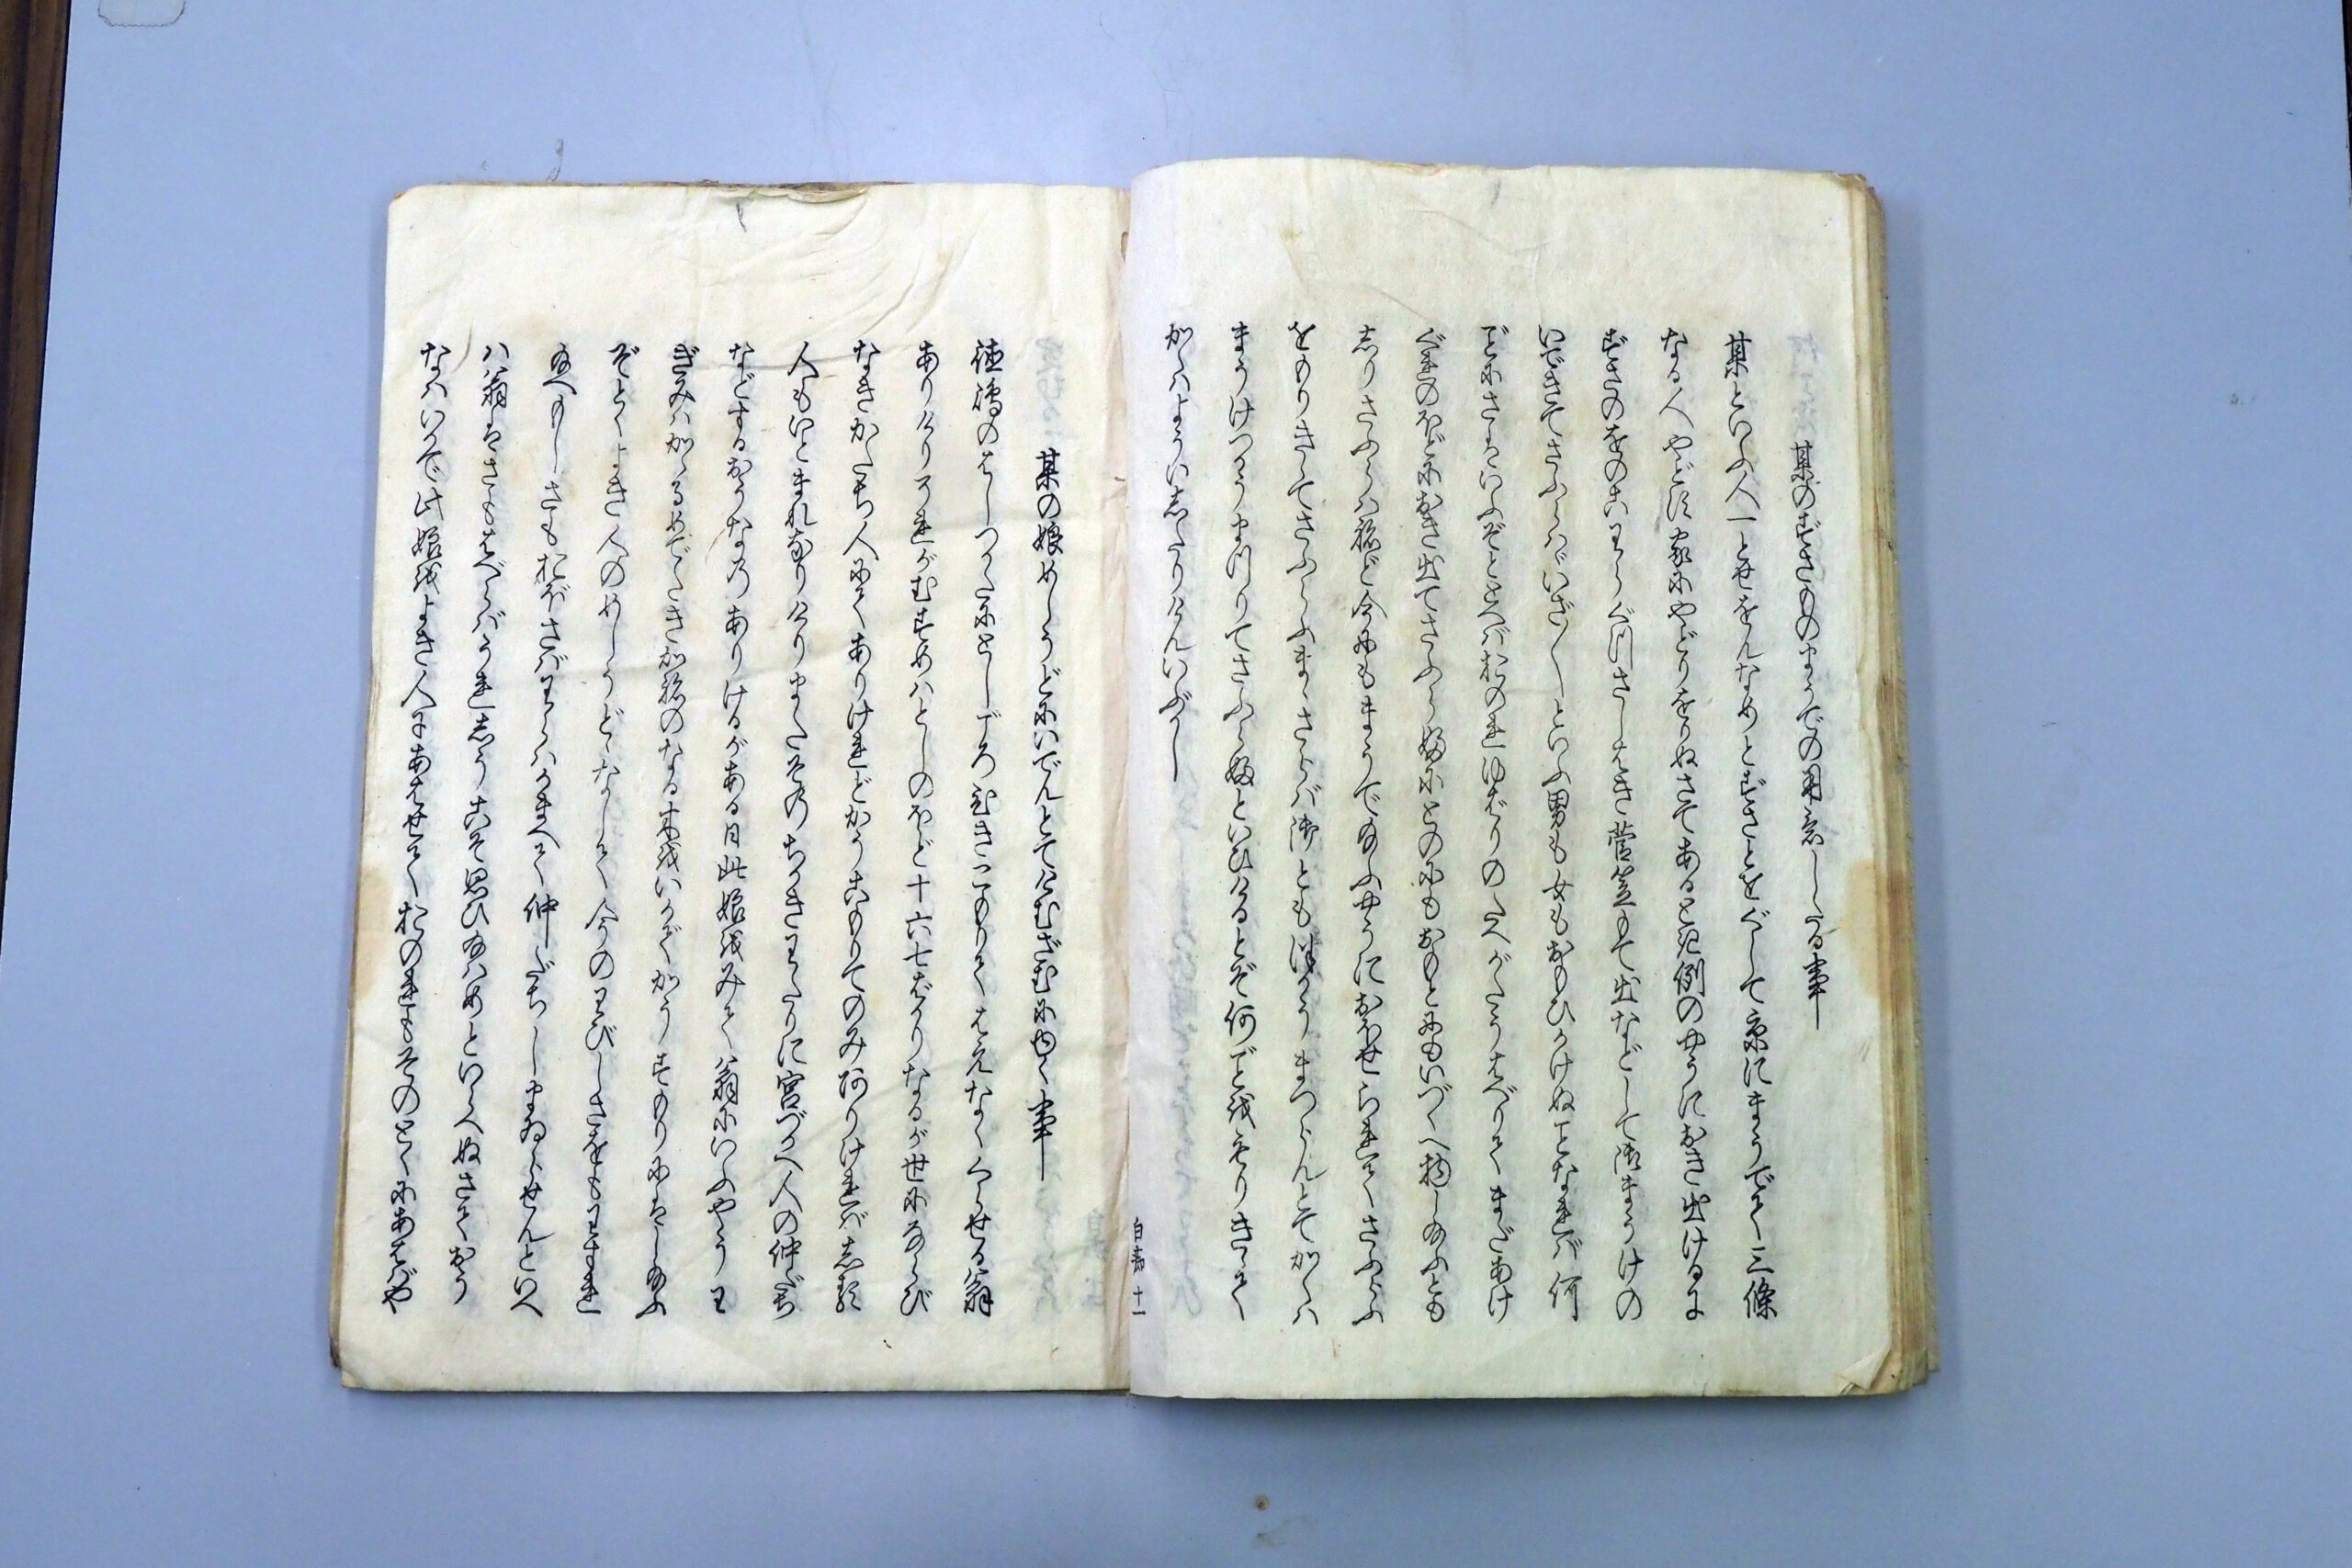 某のずさのものまうでの用意したる事
某といふ人一とせをんなめとずさとをぐして京にまうでゝ三條
なる人やどす家にやどりをりぬさてあると記例のやうにおき出けるに
ずさのをのこわらぐつさしはき菅笠もて出などして御まうけの
いできてさふらへばいざ〳〵といふ男も女もおもひかけぬことなれば何
どにさはいふぞととへばおのれゆばりのたへがたうはべりてまだあけ
ぐれのほどにおき出てさふらふにとのにもおもとにもいづくへ物し給ふとも
しりさふらはねど今にもまうで給ふやうにおほせられてさふらふ
をもりきゝてさふらふまゝさらば御とも仕うまつらんとてかくは
まうけつかうまつりてさふらふといひけるとぞ何ごとをもりきゝて
かくはよういしたりけんいぶかし
白寿 十一
某の娘めしうどにいでんとてはむざむに物く事
徳鴻のはしつかたにとしごろむきこもりてはえなくくらせる翁
ありけりそれがむすめはとしのほど十六七ばかりなるが世にならび
なきかたち人にてありけれどかうこもりてのみありければしる
人もいとまれなりけりまたその ちかきわたりに宮づかへ人の仲だち
などするおうなの ありけるがある日此娘をみて翁にいふやうわ
ぎみはかゝるめでたきかほのなる末をいかでかうすもりにはし給ふ
ぞとくよき人のめしうどゝなして今のわびしさをもわすれ
給へかしさもおぼさばわらはかまへて仲だちしまゐらせんといへ
ば翁はさもはべらばうれしうこそ思ひ給はめといらへぬさておう
なはいかで此娘をよき人にあはせておのれもそのとくにあはばや